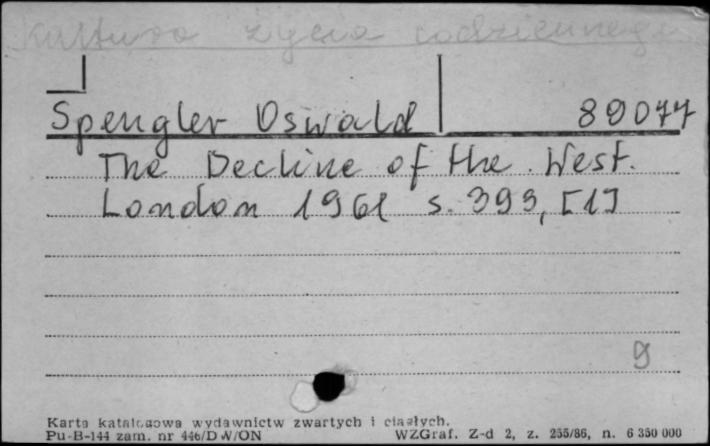 Kultura życia codziennego
Spengler Oswald 89077
The Decline of the West.
London 1961 s. 393, [1]
9
Karta katalogowa wydawnictw zwartych i ciągłych.
Pu-B-144 zam. nr 446/DW/ON WZGraf. Z-d 2, z. 255/86, n. 6 350 000